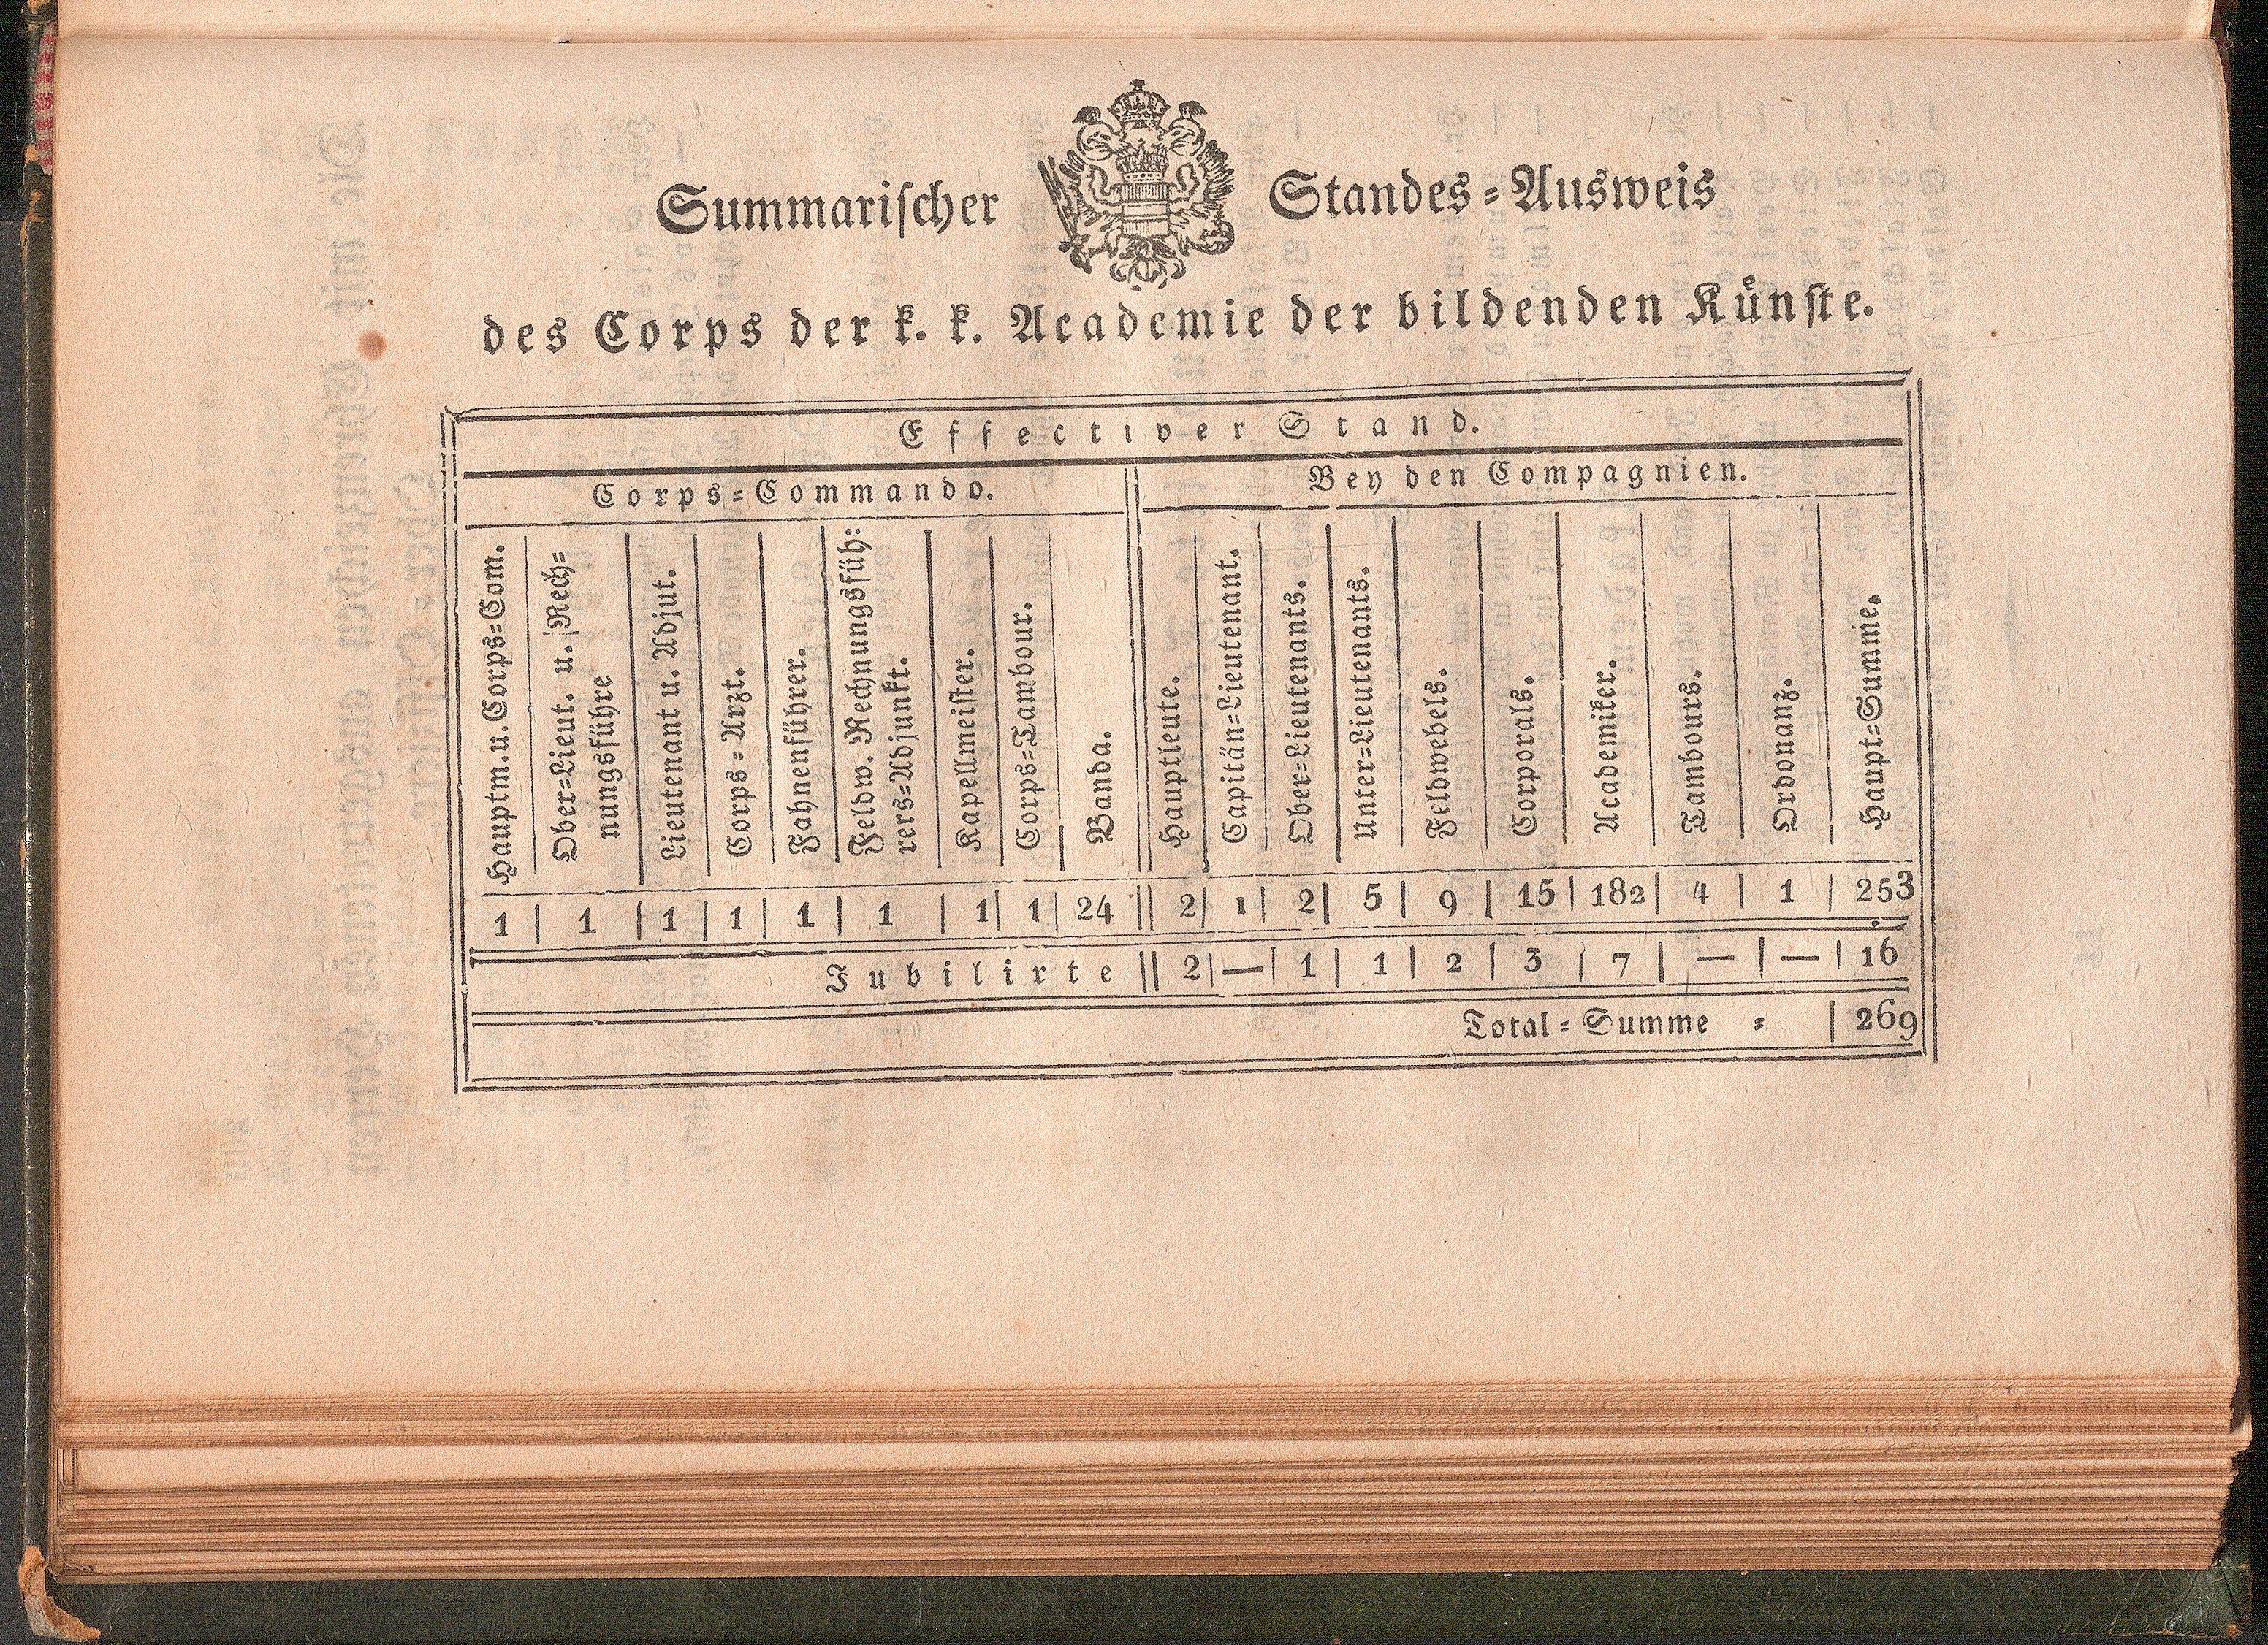 Summarischer Standes=Ausweis
des Corps der k. k. Academie der bildenden Künste.
Effectiver Stand.
Corps=Commando. Bey den Compagnien.
Hauptm. u. Corps=Com.
Ober=Lieut. u. Rech=
nungsführe
Lieutenant u. Adjut.
Corps=Arzt.
Fahnenführer.
Feldw. Rechnungsfüh:
rers=Adjunkt.
Kapellmeister.
Corps=Tambour.
Banda.
Hauptleute.
Capitän=Lieutenant.
Ober=Lieutenants.
Unter=Lieutenants.
Feldwebels.
Corporals.
Academiker.
Tambours.
Ordonanz.
Haupt=Summe.
1 1 1 1 1 1 1 1 24 2 1 2 5 9 15 182 4 1 253
Jubilirte 2 — 1 1 2 3 7 — — 16
Total=Summe = 269